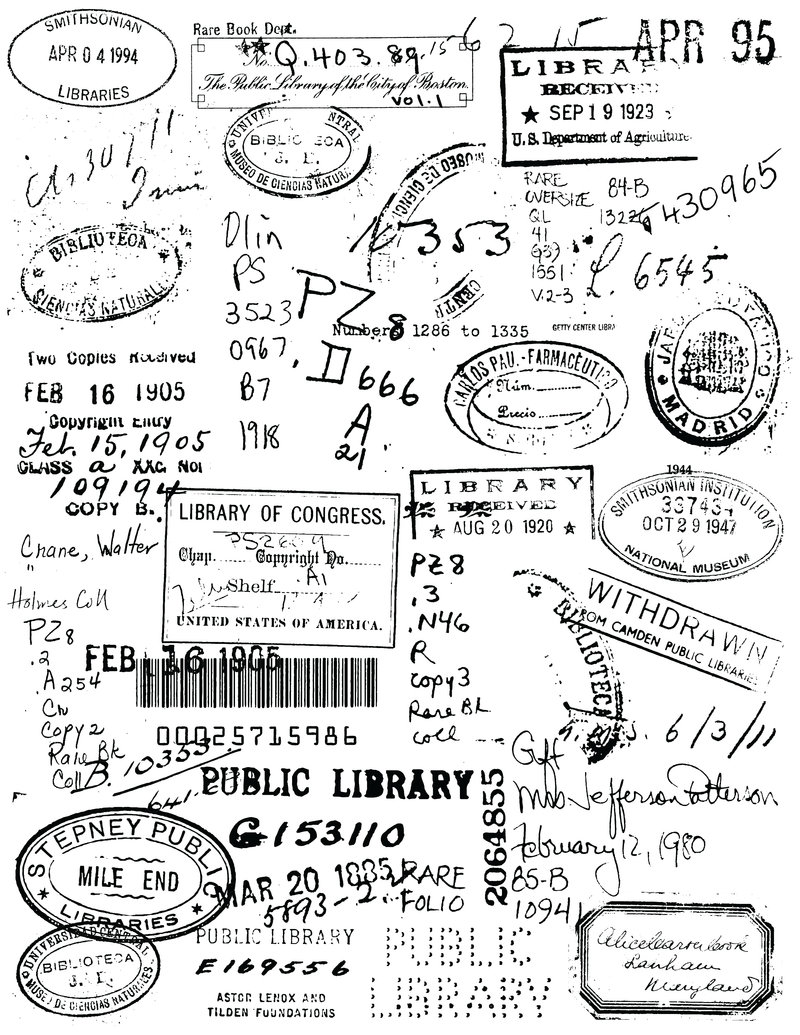 SMITHSONIAN
APR 04 1994
LIBRARIES
Rare Book Dept.
No. Q.403.89.15
The Public Library of the City of Boston.
Vol.1
6 2 15
APR 95
LIBRARY
RECEIVED
★ SEP 19 1923
U.S. Department of Agriculture
BIBLIOTECA
MUSEO DE CIENCIAS NATURA
BIBLIOTECA
CIENCIAS NATURALE
MUSEO DE CIENCI
CENTR
353
RARE
OVERSIZE
QL
41
G39
1551
V.2-3
84-B
430965
L. 6545
Olin
PS
3523
0967
B7
1918
PZ 8
D 666
A
21
Numbers 1286 to 1335
GETTY CENTER LIBR
CARLOS PAU.-FARMACÉUTICO
Núm.
Precio
MADRID
Two Copies Received
FEB 16 1905
Copyright Entry
Feb. 15, 1905
CLASS a XXc. No.
109194
COPY B.
LIBRARY OF CONGRESS.
Chap. Copyright No.
Shelf A1
UNITED STATES OF AMERICA.
LIBRARY
RECEIVED
★ AUG 20 1920 ★
1944
SMITHSONIAN INSTITUTION
337434
OCT 29 1947
NATIONAL MUSEUM
Crane, Walter
"
Holmes Coll
PZ8
.2
A254
Cr
Copy 2
Rare Bk
Coll
FEB 16 1905
00025715986
B. 10333
641
PZ8
.3
.N46
R
copy3
Rare Bk
coll
BIBLIOTECA
WITHDRAWN
FROM CAMDEN PUBLIC LIBRARIES
6/3/11
Gift
Mrs Jefferson Patterson
February 12, 1980
85-B
10941
PUBLIC LIBRARY
G153110
MAR 20 1885
5893-2
RARE
FOLIO
2064855
STEPNEY PUBLIC
MILE END
LIBRARIES
UNIVERSIDAD CENTRAL
BIBLIOTECA
MUSEO DE CIENCIAS NATURALES
PUBLIC LIBRARY
E169556
ASTOR LENOX AND
TILDEN FOUNDATIONS
PUBLIC
LIBRARY
Lanham
Maryland